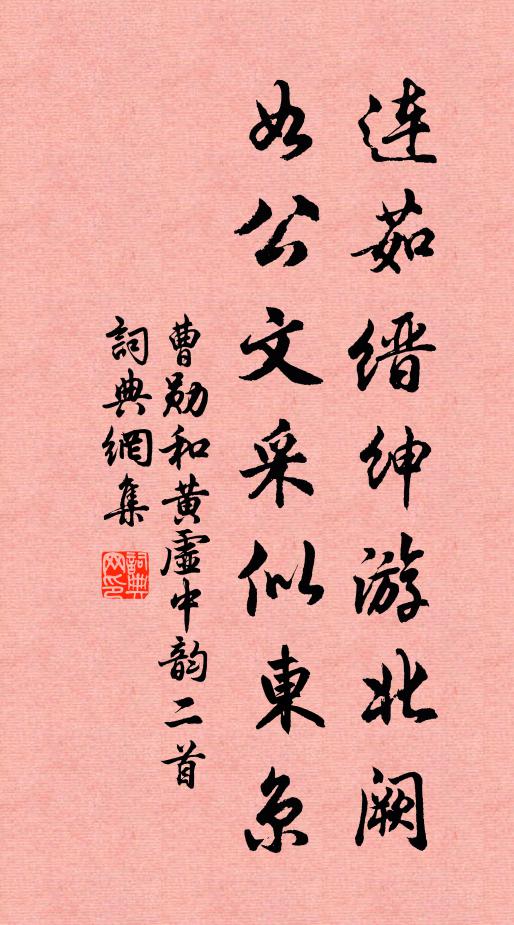 連茹缙紳游北阙
如公文采似東京
曹勛和黄虛中韵二首
詞典網集
詞典网印